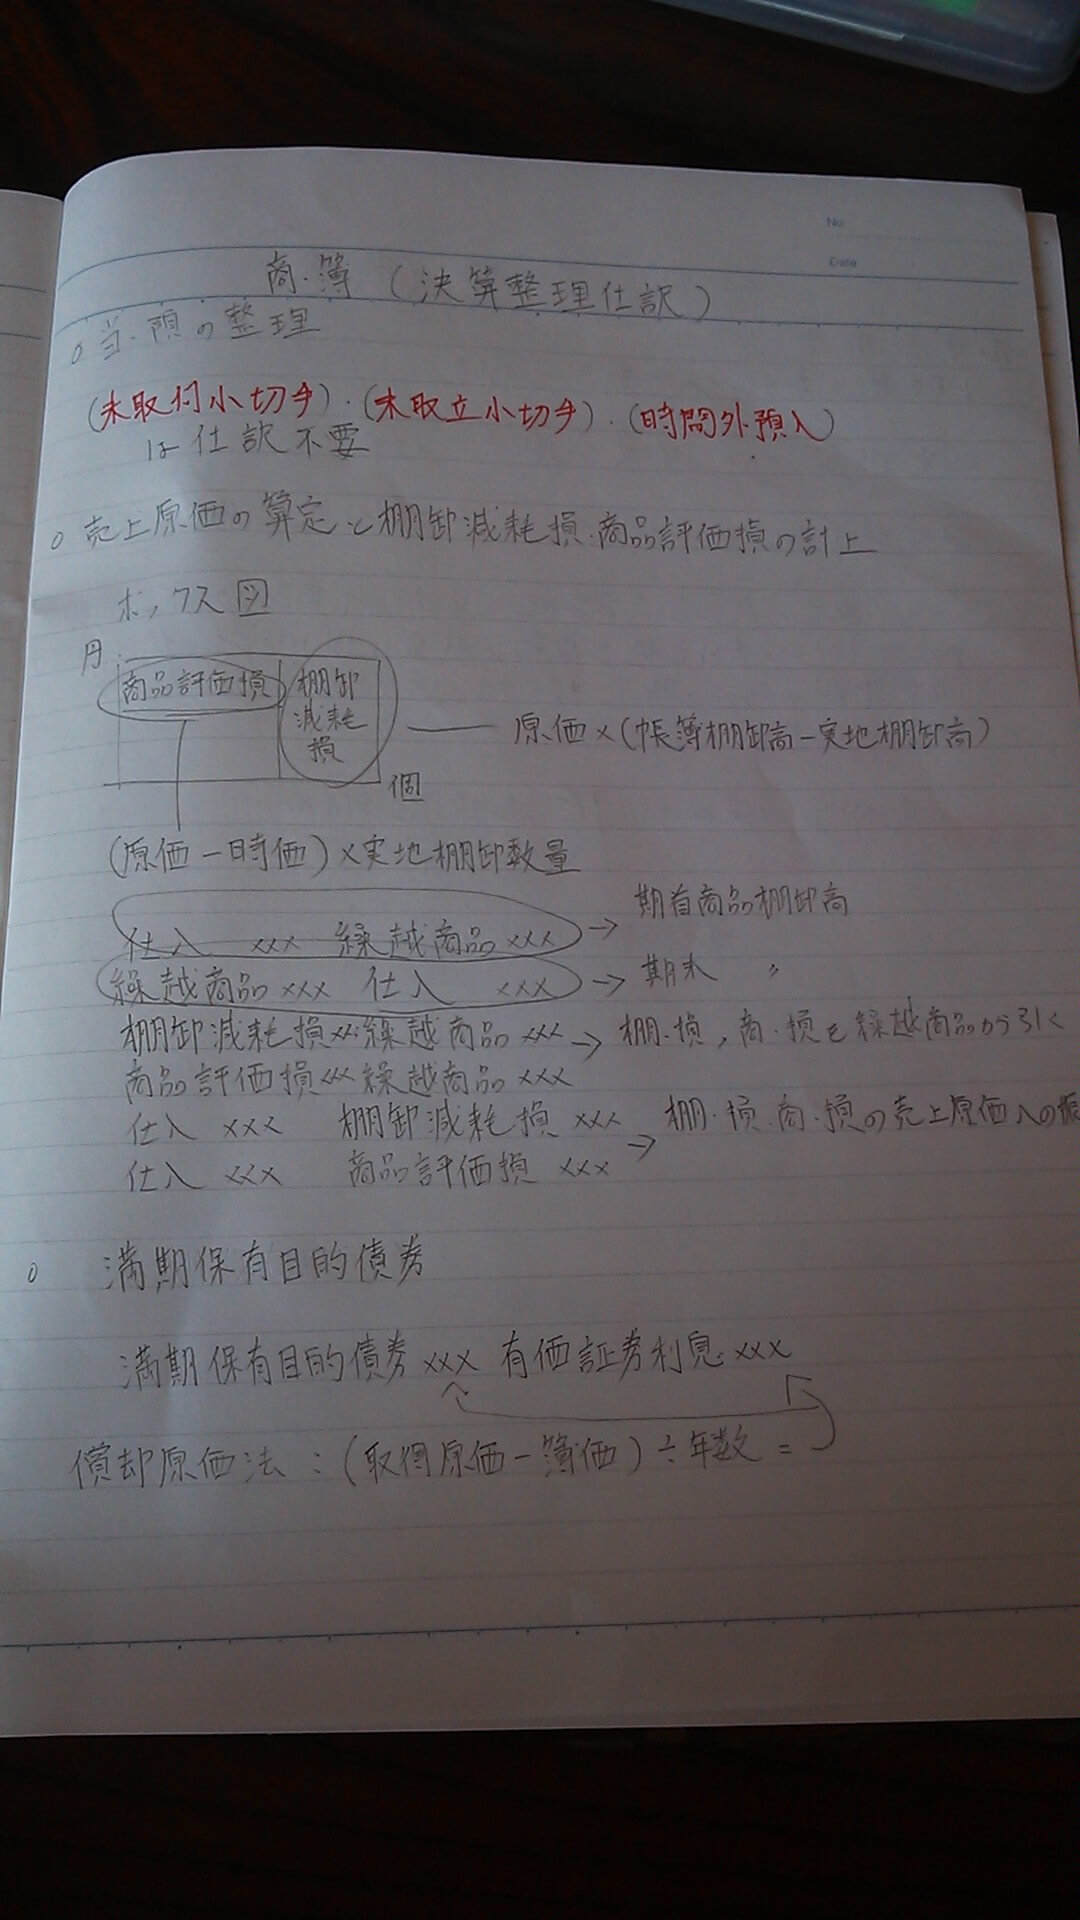 No
Date
商.簿 (決算整理仕訳)
o 当.預の整理
(未取付小切手).(未取立小切手).(時間外預入)
は仕訳不要
o 売上原価の算定と棚卸減耗損.商品評価損の計上
ボックス図
円
商品評価損 棚卸
減耗
損
原価×(帳簿棚卸高-実地棚卸高)
個
(原価-時価)×実地棚卸数量
仕入 xxx 繰越商品 xxx → 期首商品棚卸高
繰越商品 xxx 仕入 xxx → 期末 〃
棚卸減耗損 xxx 繰越商品 xxx → 棚.損,商.損を繰越商品から引く
商品評価損 xxx 繰越商品 xxx
仕入 xxx 棚卸減耗損 xxx → 棚.損.商.損の売上原価への振
仕入 xxx 商品評価損 xxx
o 満期保有目的債券
満期保有目的債券 xxx 有価証券利息 xxx
償却原価法:(取得原価-簿価)÷年数=